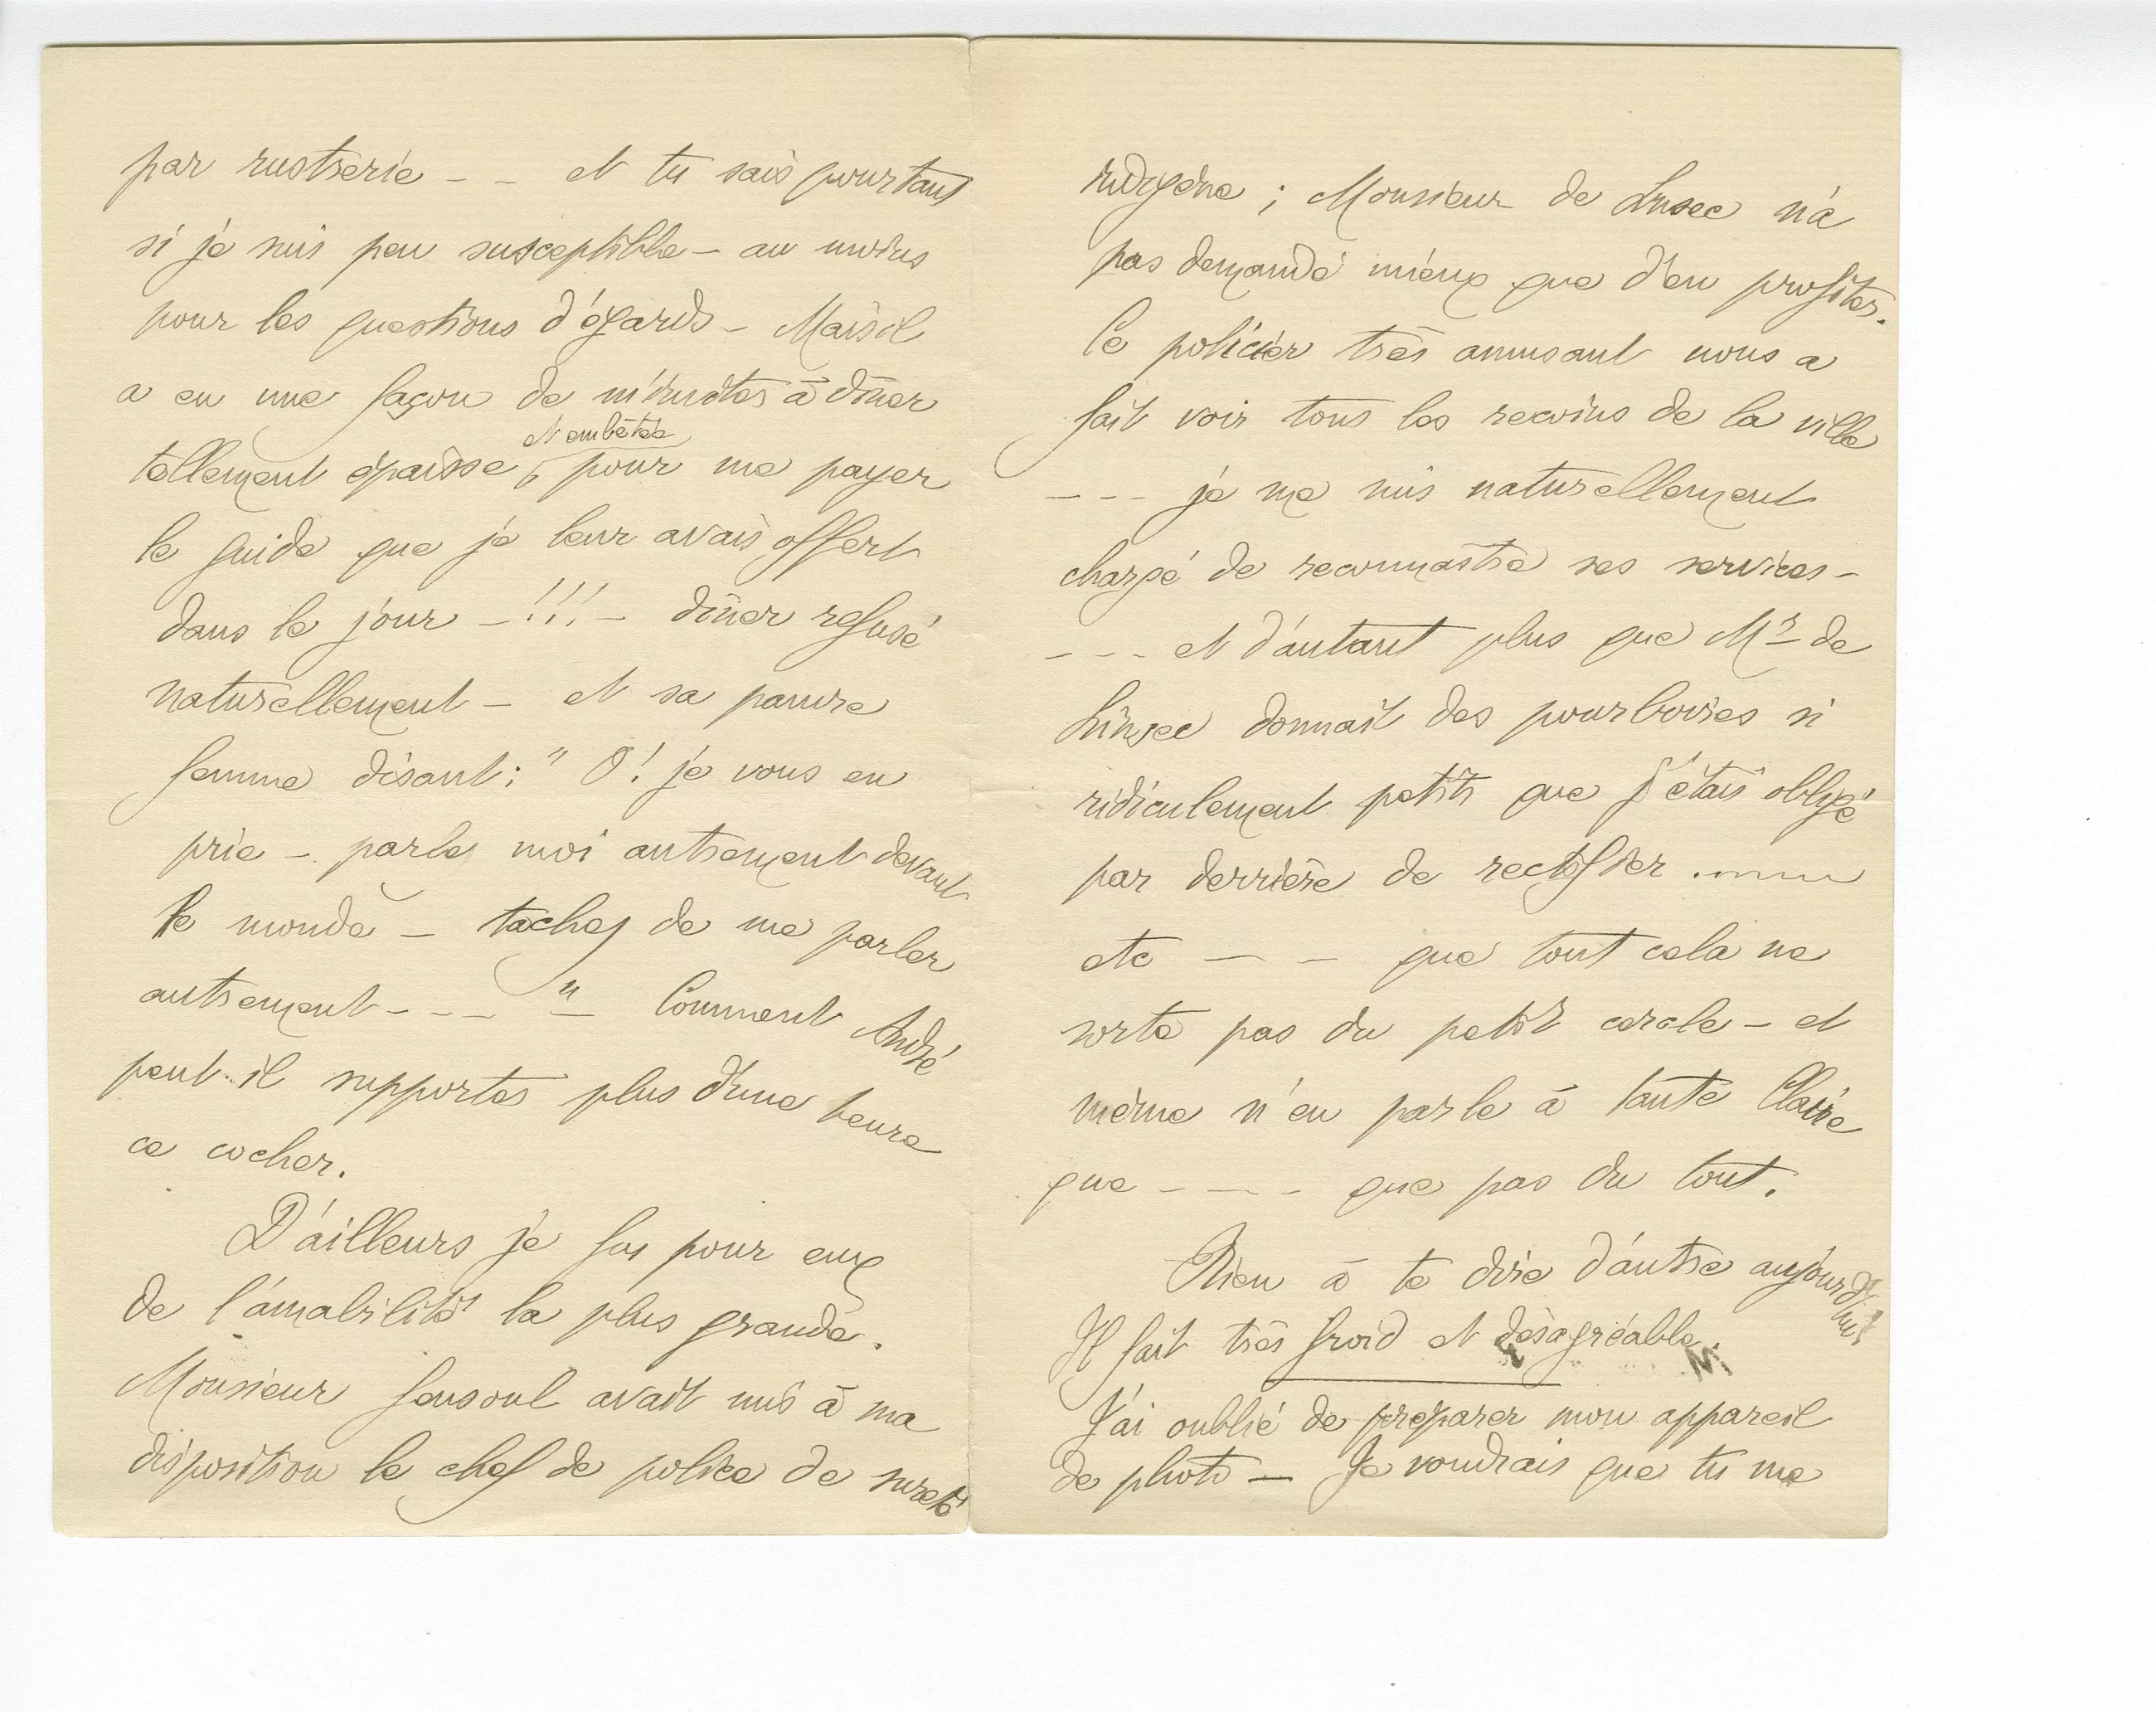 par rustrerie - - et tu sais pourtant
si je suis peu susceptible - au moins
pour les questions d'égards - Mais il
a eu une façon de m'inviter à dîner
et embêtée
tellement épaisse, pour me payer
le guide que je leur avais offert
dans le jour - !!! - dîner refusé
naturellement - et sa pauvre
femme disant : " O ! je vous en
prie - parlez moi autrement devant
le monde - tachez de me parler
autrement - - - " - Comment André
peut-il supporter plus d'une heure
ce cocher.
D'ailleurs je fus pour eux
de l'amabilité la plus grande.
Monsieur Gensoul avait mis à ma
disposition le chef de police de sureté
indigène ; Monsieur de n'a
pas demandé mieux que d'en profiter.
Ce policier très amusant nous a
fait voir tous les recoins de la ville
- - - je me suis naturellement
chargé de reconnaître ses services -
- - - et d'autant plus que Mr de
donnait des pourboires si
ridiculement petits que j'étais obligé
par derrière de rectifier .......
etc - - que tout cela ne
sorte pas du petit cercle - et
même n'en parle à tante Claire
que - - - que pas du tout.
Rien à te dire d'autre aujourd'hui
Il fait très froid et désagréable.
J'ai oublié de préparer mon appareil
de photo - Je voudrais que tu me